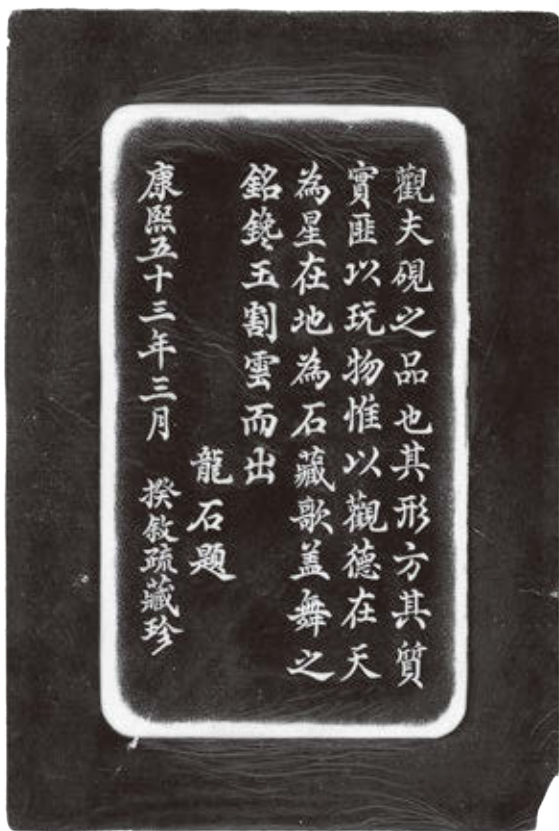 觀夫硯之品也其形方其質
實匪以玩物惟以觀德在天
為星在地為石藏歌蓋舞之
銘鑱玉割雲而出
龍石題
康熙五十三年三月 揆敘疏藏珍